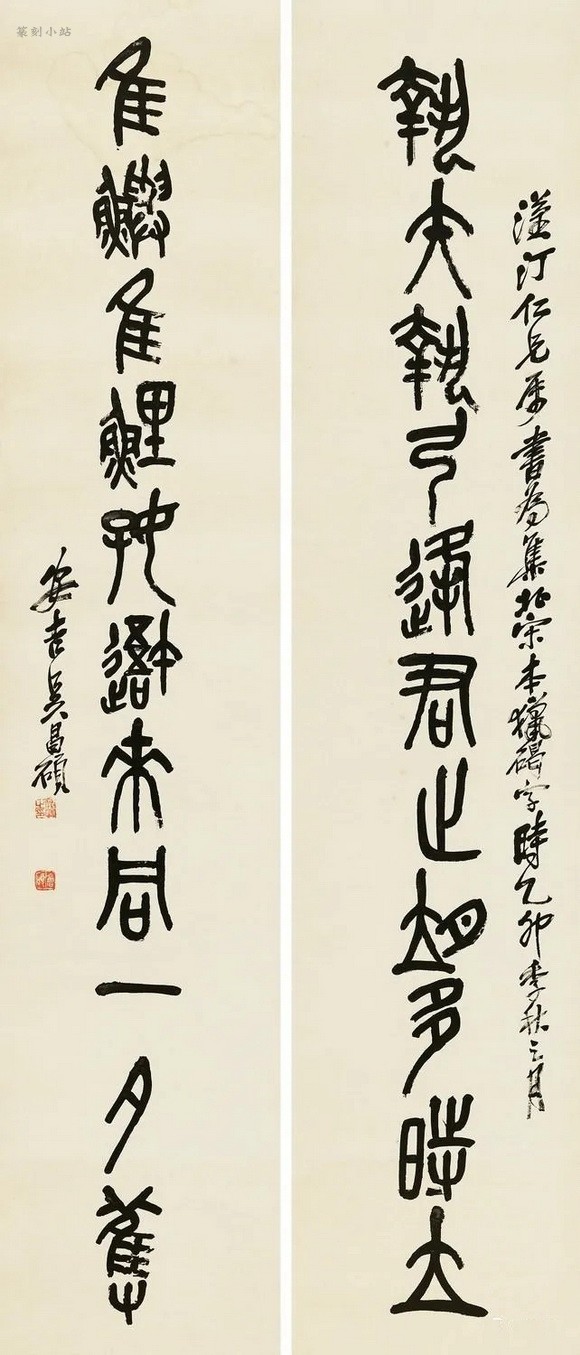 汀仁兄屬書為集北宋本獵碣字時乙卯季秋之月
執矢執弓逢君止多時立
隹鱮隹鯉來同一夕舊
安吉吳昌碩
篆刻小站